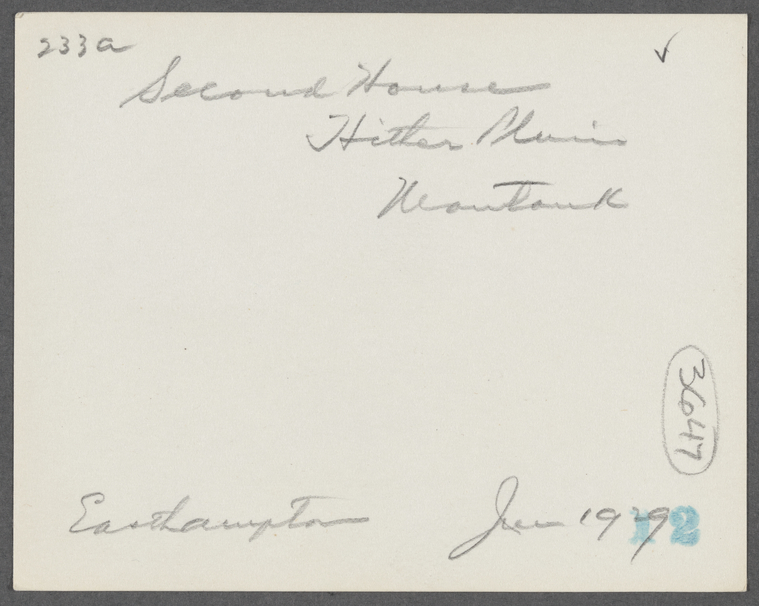 233a
Second House
Hither Plain
Montauk
3647
Easthampton
1929
12